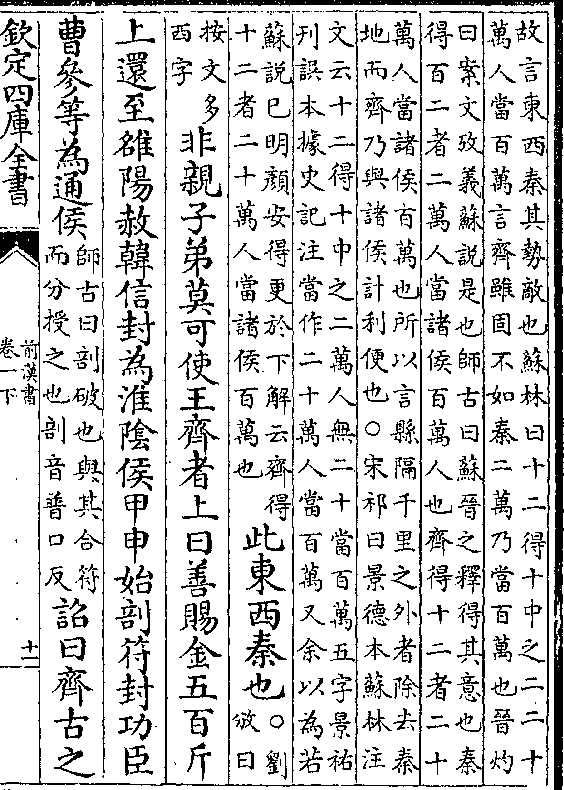 故言東西秦其勢敵也蘇林曰十二得十中之二二十
萬人當百萬言齊雖固不如秦二萬乃當百萬也晉灼
曰案文攷義蘇說是也師古曰蘇晉之釋得其意也秦
得百二者二萬人當諸侯百萬人也齊得十二者二十
萬人當諸侯百萬也所以言縣隔千里之外者除去秦
地而齊乃與諸侯計利便也○宋祁曰景德本蘇林注
文云十二得十中之二萬人無二十當百萬五字景祐
刊誤本據史記注當作二十萬人當百萬又余以為若
蘇說已明顏安得更於下解云齊得
十二者二十萬人當諸侯百萬也
此東西秦也
○劉
攽曰
按文多
西字
非親子弟莫可使王齊者上曰善賜金五百斤
上還至雒陽赦韓信封為淮陰侯甲申始剖符封功臣
曹參等為通侯
師古曰剖破也與其合符
而分授之也剖音普口反
詔曰齊古之
欽定四庫全書
前漢書
卷一下
十一